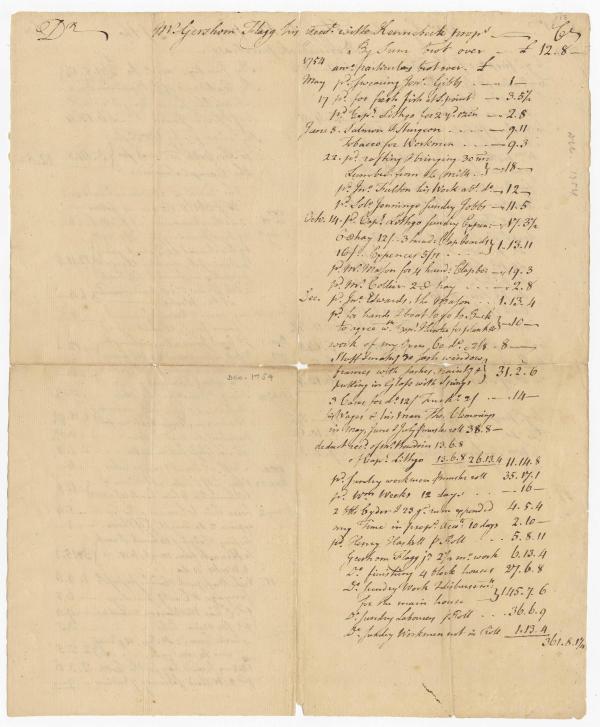 Dr Mr. Gershom Flagg his Acct. with Kennebeck propr. Cr
By Sum brot over — £ 12.8 —
1754 amo. particulars brot over £
May pd. swearing Jon. Gibbs — 1 —
17 pd. for fresh fish at — 3.5½
pd. Capt. Lithgo for — 2.8
June 8. Salmon & Sturgeon — 9.11
Tobacco for Workmen — 9.3
22. pd. rafting & bringing 30 m
Lumber from the Mill } — 18 —
pd. Jno. Fulton his Work abt. Do — 12 —
pd. Jennings sundry Jobbs — 11.5
Octr. 14. pd. Capt. Lithgo sundry Expen: — 17.3½
hay 12/ - 3 hund: Clapboards
16/ Expences 5/11 } 1.13.11
pd. Mr. Mason for 4 hund: Clapbo: — 19.3
pd. Mr. Collier 2 hay — 2.8
Dec. pd. Jno. Edwards, the Mason .. 1.13.4
pd. for hands & boat to go to
to agree wth. Capt. for planks } — 10 —
work of my Oxen, 60 ds. @ 2/8 8 —
Stuff & making 30 sash window
frames with sashes, painting &
putting in Glass with } 31.2.6
3 Cases for do. 12/ Truckg. 2/ — 14 —
his Wages & his man Tho. Clemmings
in May, June & July muster roll 38.8 —
deduct recd. of Mr. Bowdoin 13.6.8
of Capt. Lithgo 13.6.8 26.13.4 11.14.8
pd. sundry workmen muster roll 35.17.1
pd. Wm. Weeks 12 days — 16 —
2 bbl Cyder & 23 gs. rum expended 4.5.4
my Time in prepg. Acct. 10 days 2.10 —
pd. Henry Haskell p. Roll .. 5.8.11
Gershom Flagg jr. 2½ mo. work 6.13.4
Do. finishing 4 block houses 27.6.8
Do. sundry Work & disbursemts.
for the main house } 145.7.6
Do. sundry Labourers p. Roll .. 36.6.9
Do. sundry Workmen not in Roll 1.13.4
361.8.1¼
Dec. 1754
Dec. 1754